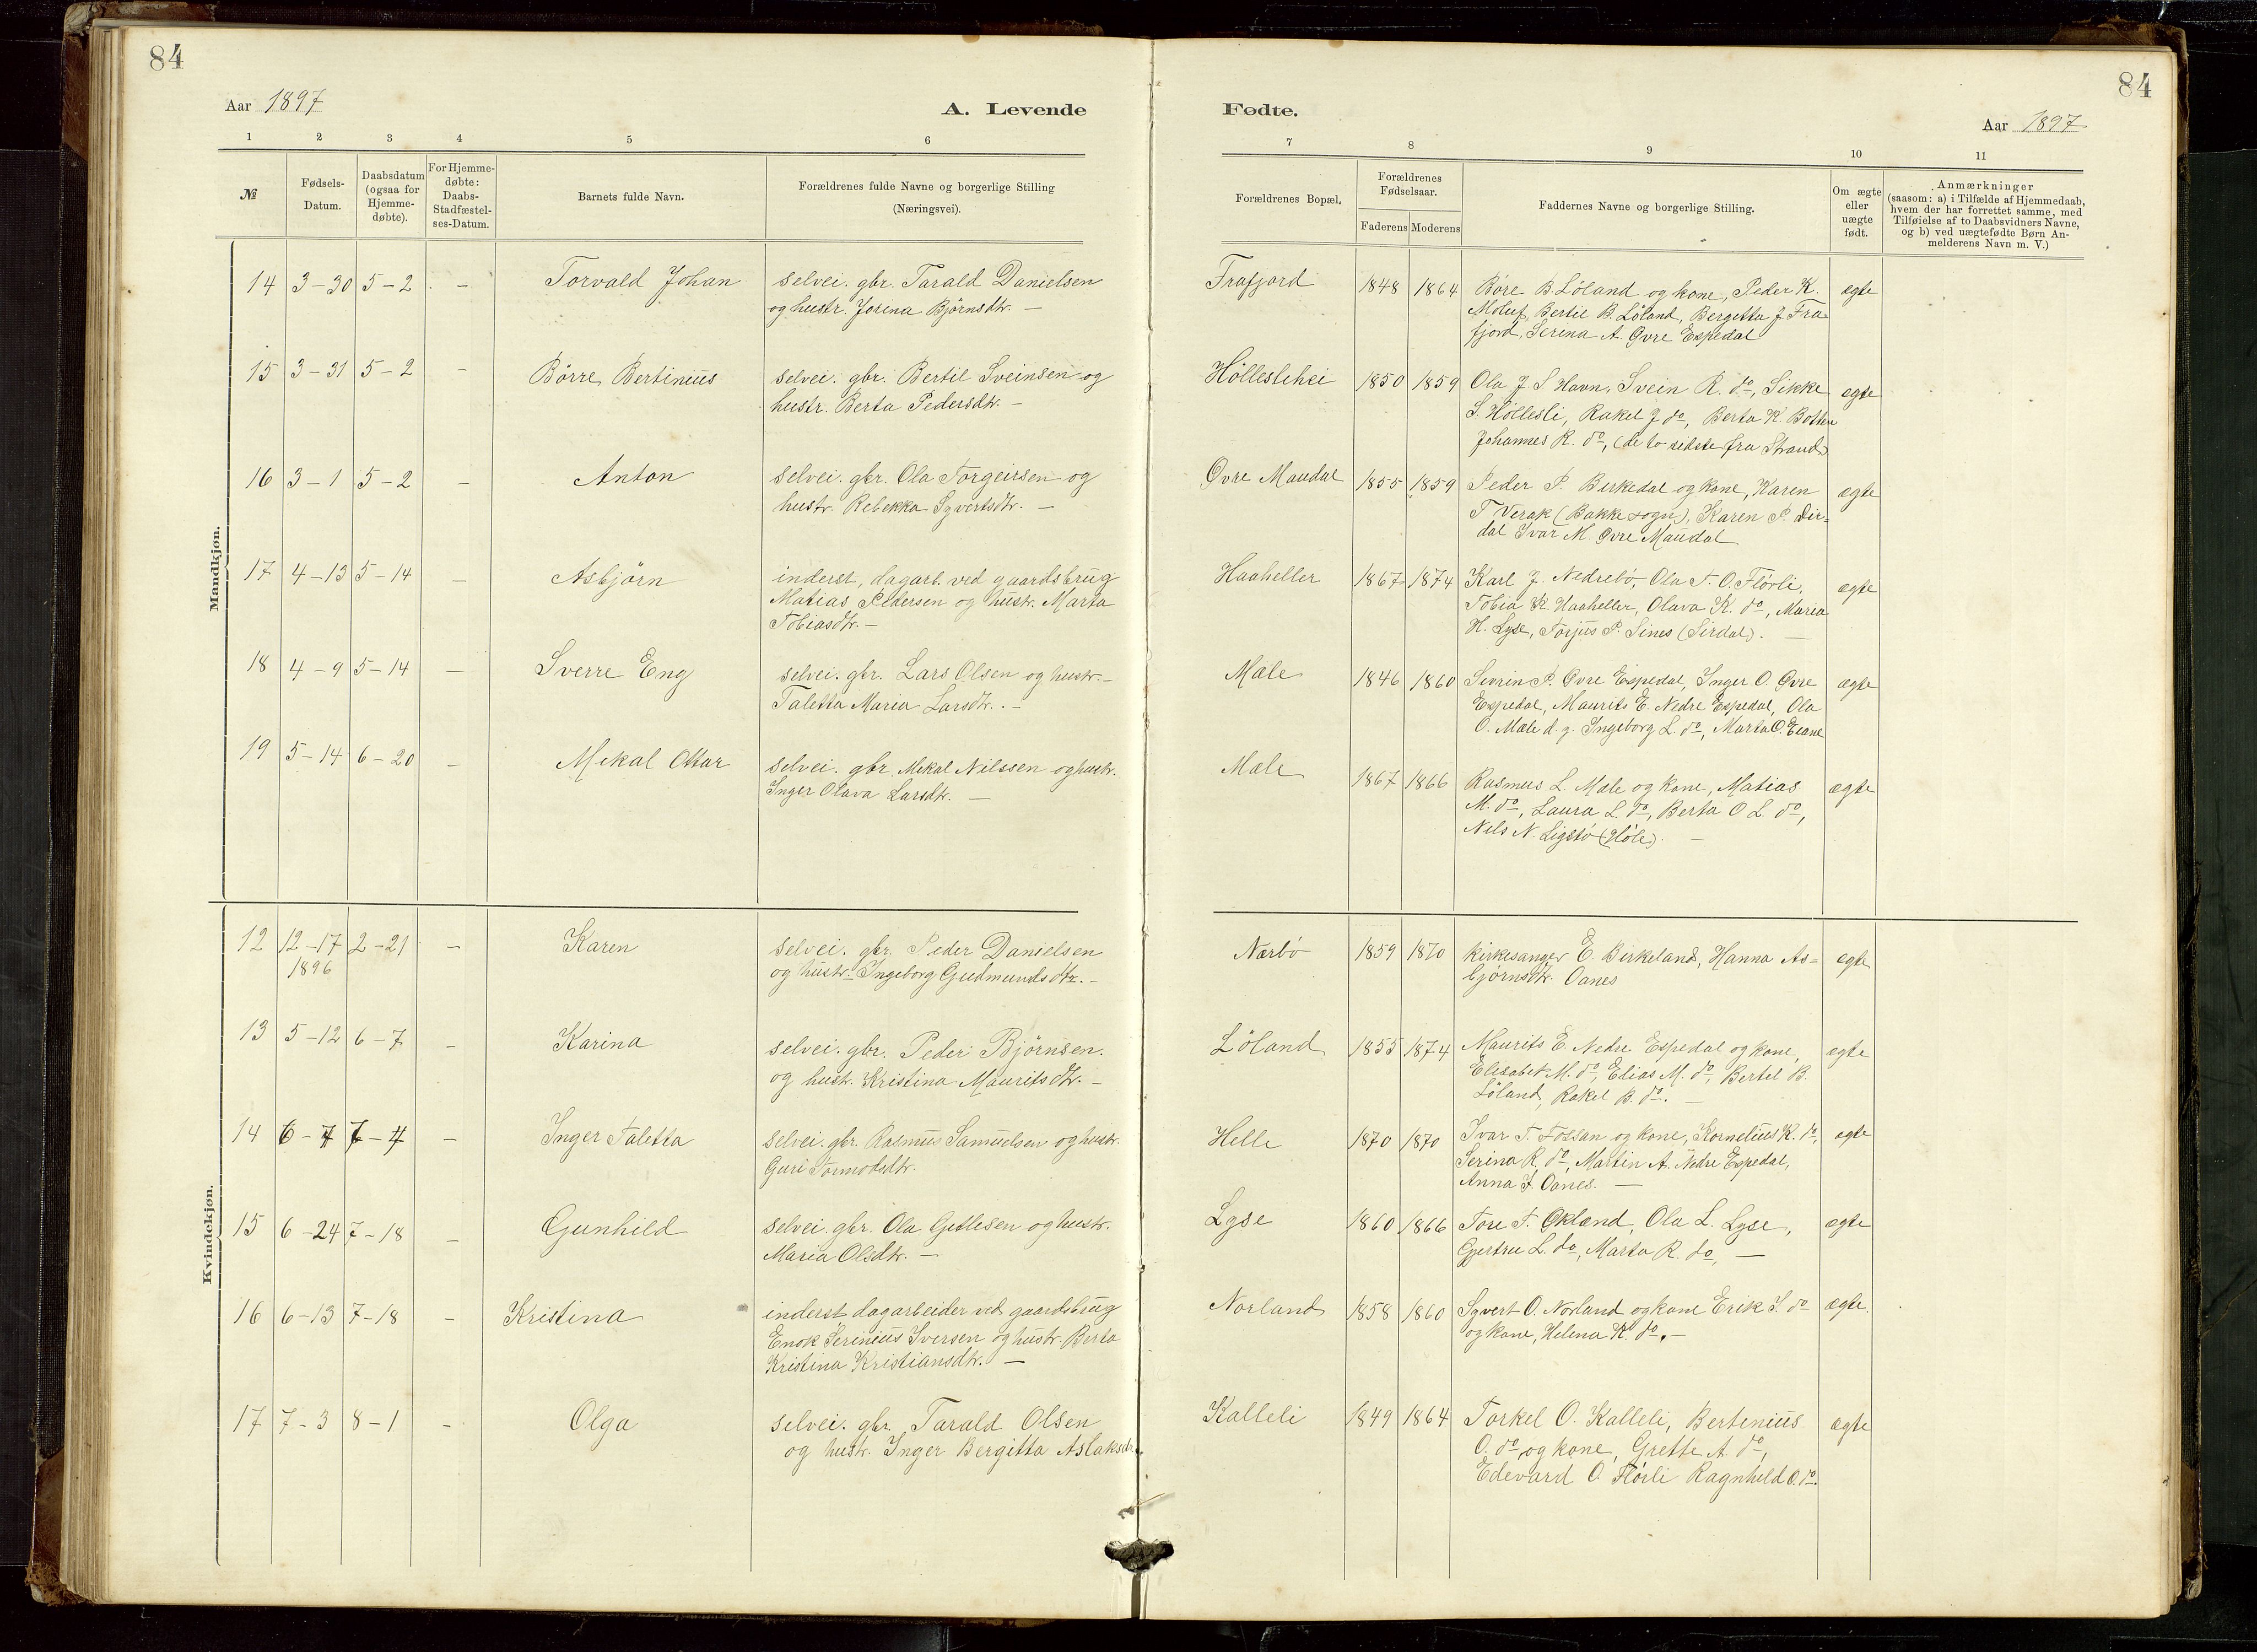 84
Aar 1897
A. Levende
1 2 3 4 5 6
№
Fødsels-
Datum.
Daabsdatum
(ogsaa for
Hjemme-
døbte).
For Hjemme-
døbte:
Daabs-
Stadfæstel-
ses-Datum.
Barnets fulde Navn.
Forældrenes fulde Navne og borgerlige Stilling
(Næringsvei).
Mandkjøn.
14 3-30 5-2 - Torvald Johan selvei. gbr. Tarald Danielsen
og hustr. Jorina Björnsdtr. -
15 3-31 5-2 - Börre Bertinius selvei. gbr. Bertil Sveinsen og
hustr. Berta Pedersdtr. -
16 3-1 5-2 - Anton selvei. gbr. Ola Torgeirsen og
hustr. Rebekka Syvertsdtr. -
17 4-13 5-14 - Asbjörn inderst, dagarb. ved gaardsbrug
Matias Pedersen og hustr. Marta
Tobiasdtr. -
18 4-9 5-14 - Sverre Eng selvei. gbr. Lars Olsen og hustr. -
Taletta Maria Larsdtr. -
19 5-14 6-20 - Mikal Ottar selvei. gbr. Mikal Nilssen og hustr.
Inger Olava Larsdtr. -
Kvindekjøn.
12 12-17 2-21 - Karen selvei. gbr. Peder Danielsen
1896
og hustr. Ingeborg Gudmundsdtr. -
13 5-12 6-7 - Karina selvei. gbr. Peder Björnsen.
og hustr. Kristina Mauritsdtr. -
14 6-7 7-4 - Inger Taletta selvei. gbr. Rasmus Samuelsen og hustr.
Guri Tormodsdtr.
15 6-24 7-18 - Gunhild selvei. gbr. Ola Gitlesen og hustr.
Maria Olsdtr. -
16 6-13 7-18 - Kristina inderst dagarbeider ved gaardsbrug
Enok Serinius Iversen og hustr. Berta
Kristina Kristiansdtr. -
17 7-3 8-1 - Olga selvei. gbr. Tarald Olsen
og hustr. Inger Bergitta Aslaksdtr.
84
Fødte.
Aar 1897
7 8 9 10 11
Forældrenes Bopæl.
Forældrenes
Fødselsaar.
Faderens Moderens
Faddernes Navne og borgerlige Stilling.
Om ægte
eller
uægte
født.
Anmærkninger
(saasom: a) i Tilfælde af Hjemmedaab,
hvem der har forrettet samme, med
Tilføielse af to Daabsvidners Navne,
og b) ved uægtefødte Børn An-
melderens Navn m. V.)
Frafjord 1848 1864 Böre B. Löland og kone, Peder K. ægte
Moluf, Bertil B. Löland, Bergitta J Fra-
fjord, Serina A. Øvre Espedal
Hölleslihei 1850 1859 Ola J. S Havn, Svein R. do, Sikke ægte
S. Höllesli, Rakel J do, Berta K. Botten
Johannes R. do, (de to sidste fra Strand)
Øvre Maudal 1855 1859 Peder P. Birkedal og kone, Karen ægte
T Verak (Bakke sogn), Karen P. Dir-
dal Ivar M. Øvre Maudal
Haaheller 1867 1874 Karl J. Nedrebö, Ola T. O. Flörli, ægte
Tobia K. Haaheller, Olava K. do, Maria
H. Lyse, Torjus P. Sines (Sirdal). -
Mæle 1846 1860 Sivrin P. Øvre Espedal, Inger O. Øvre ægte
Espedal, Maurits E. Nedre Espedal, Ola
O. Mæle d. y. Ingeborg L. do, Marta O. Eiane
Mæle 1867 1866 Rasmus L. Mæle og kone, Matias ægte
M. do, Laura L. do, Berta O L. do,
Nils N. Ligstö (Höle). -
Nærbö 1859 1870 Kirkesanger E. Birkeland, Hanna As- ægte
bjørnsdtr. Oanes
Löland 1855 1874 Maurits E. Nedre Espedal og kone, ægte
Elisabet M. do, Elias M. do, Bertil B.
Löland, Rakel B. do. -
Helle 1870 1870 Ivar T. Fossan og kone, Kornelius K. do, ægte
Serina R. do, Martin A. Nedre Espedal,
Anna J. Oanes. -
Lyse 1860 1866 Tore T. Økland, Ola L. Lyse, ægte
Gjertru L. do, Marta R. do, -
Norland 1858 1860 Syvert O. Norland og kone Erik S. do ægte.
og kone, Helena K. do. -
Kalleli 1849 1864 Torkel O. Kalleli, Bertinius ægte
O. do og kone, Grette A. do,
Edevard O. Flörli Ragnhild O. do.